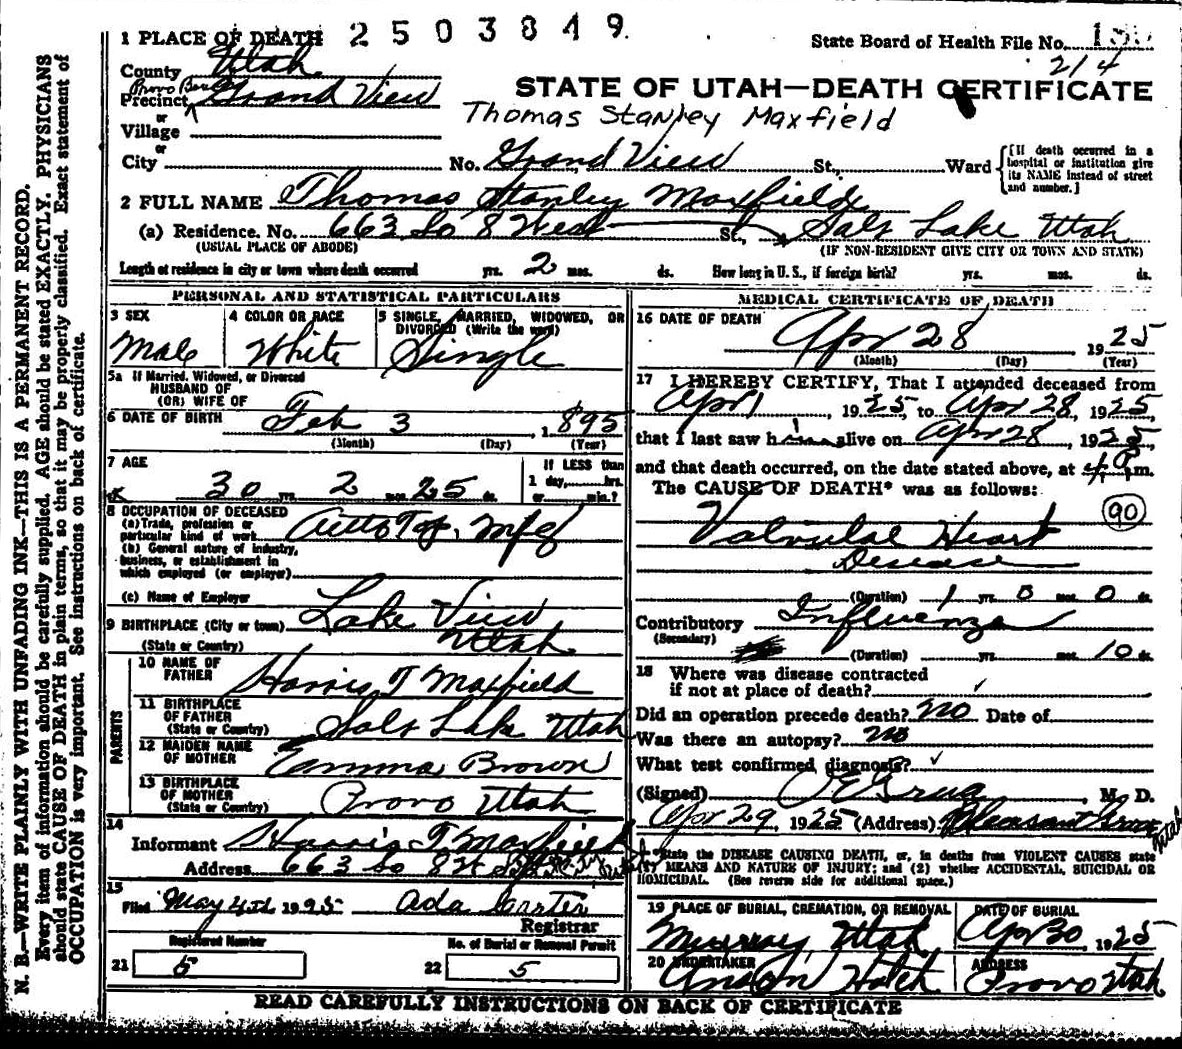 2503849.
1 PLACE OF DEATH
State Board of Health File No.
214
County Utah
Precinct Grand View
or
Village
or
City
STATE OF UTAH—DEATH CERTIFICATE
Thomas Stanley Maxfield
No. Grand View St., Ward
[If death occurred in a hospital or institution give its NAME instead of street and number.]
2 FULL NAME Thomas Stanley Maxfield
(a) Residence. No. 663 So 8 West St., Salt Lake Utah
(USUAL PLACE OF ABODE) (IF NON-RESIDENT GIVE CITY OR TOWN AND STATE)
Length of residence in city or town where death occurred yrs. 2 mos. ds. How long in U. S., if foreign birth? yrs. mos. ds.
PERSONAL AND STATISTICAL PARTICULARS
3 SEX
Male
4 COLOR OR RACE
White
5 SINGLE, MARRIED, WIDOWED, OR DIVORCED (Write the word)
Single
5a If Married, Widowed, or Divorced
HUSBAND OF
(OR) WIFE OF
6 DATE OF BIRTH Feb 3, 1895
(Month) (Day) (Year)
7 AGE
30 yrs. 2 mos. 25 ds.
If LESS than
1 day, hrs.
or min.?
8 OCCUPATION OF DECEASED
(a) Trade, profession or
particular kind of work Auto Top Mfg
(b) General nature of industry,
business, or establishment in
which employed (or employer)
(c) Name of Employer
9 BIRTHPLACE (City or town) Lake View
(State or Country) Utah
PARENTS
10 NAME OF
FATHER Harris T Maxfield
11 BIRTHPLACE
OF FATHER
(State or Country) Salt Lake Utah
12 MAIDEN NAME
OF MOTHER Emma Brown
13 BIRTHPLACE
OF MOTHER
(State or Country) Provo Utah
14
Informant Harris T Maxfield
Address 663 So 8 W
15
Filed May 4th 1925 Ada
Registrar
Registered Number
21 5
No. of Burial or Removal Permit
22 5
MEDICAL CERTIFICATE OF DEATH
16 DATE OF DEATH
Apr 28 1925
(Month) (Day) (Year)
17 I HEREBY CERTIFY, That I attended deceased from
Apr 1, 1925, to Apr 28, 1925,
that I last saw him alive on Apr 28, 1925,
and that death occurred, on the date stated above, at 4 P. m.
The CAUSE OF DEATH* was as follows:
90
Valvular Heart
Disease
(Duration) 1 yrs. 0 mos. 0 ds.
Contributory Influenza
(Secondary)
(Duration) yrs. mos. 10 ds.
18 Where was disease contracted
if not at place of death?
Did an operation precede death? No Date of
Was there an autopsy? No
What test confirmed diagnosis?
(Signed) M. D.
Apr 29, 1925 (Address) Pleasant Grove Utah
*State the DISEASE CAUSING DEATH, or, in deaths from VIOLENT CAUSES state
(1) MEANS AND NATURE OF INJURY; and (2) whether ACCIDENTAL, SUICIDAL OR
HOMICIDAL. (See reverse side for additional space.)
19 PLACE OF BURIAL, CREMATION, OR REMOVAL
Murray, Utah
DATE OF BURIAL
Apr 30 1925
20 UNDERTAKER
Hatch
ADDRESS
Provo Utah
READ CAREFULLY INSTRUCTIONS ON BACK OF CERTIFICATE
N. B.—WRITE PLAINLY WITH UNFADING INK—THIS IS A PERMANENT RECORD.
Every item of information should be carefully supplied. AGE should be stated EXACTLY. PHYSICIANS
should state CAUSE OF DEATH in plain terms, so that it may be properly classified. Exact statement of
OCCUPATION is very important. See instructions on back of certificate.